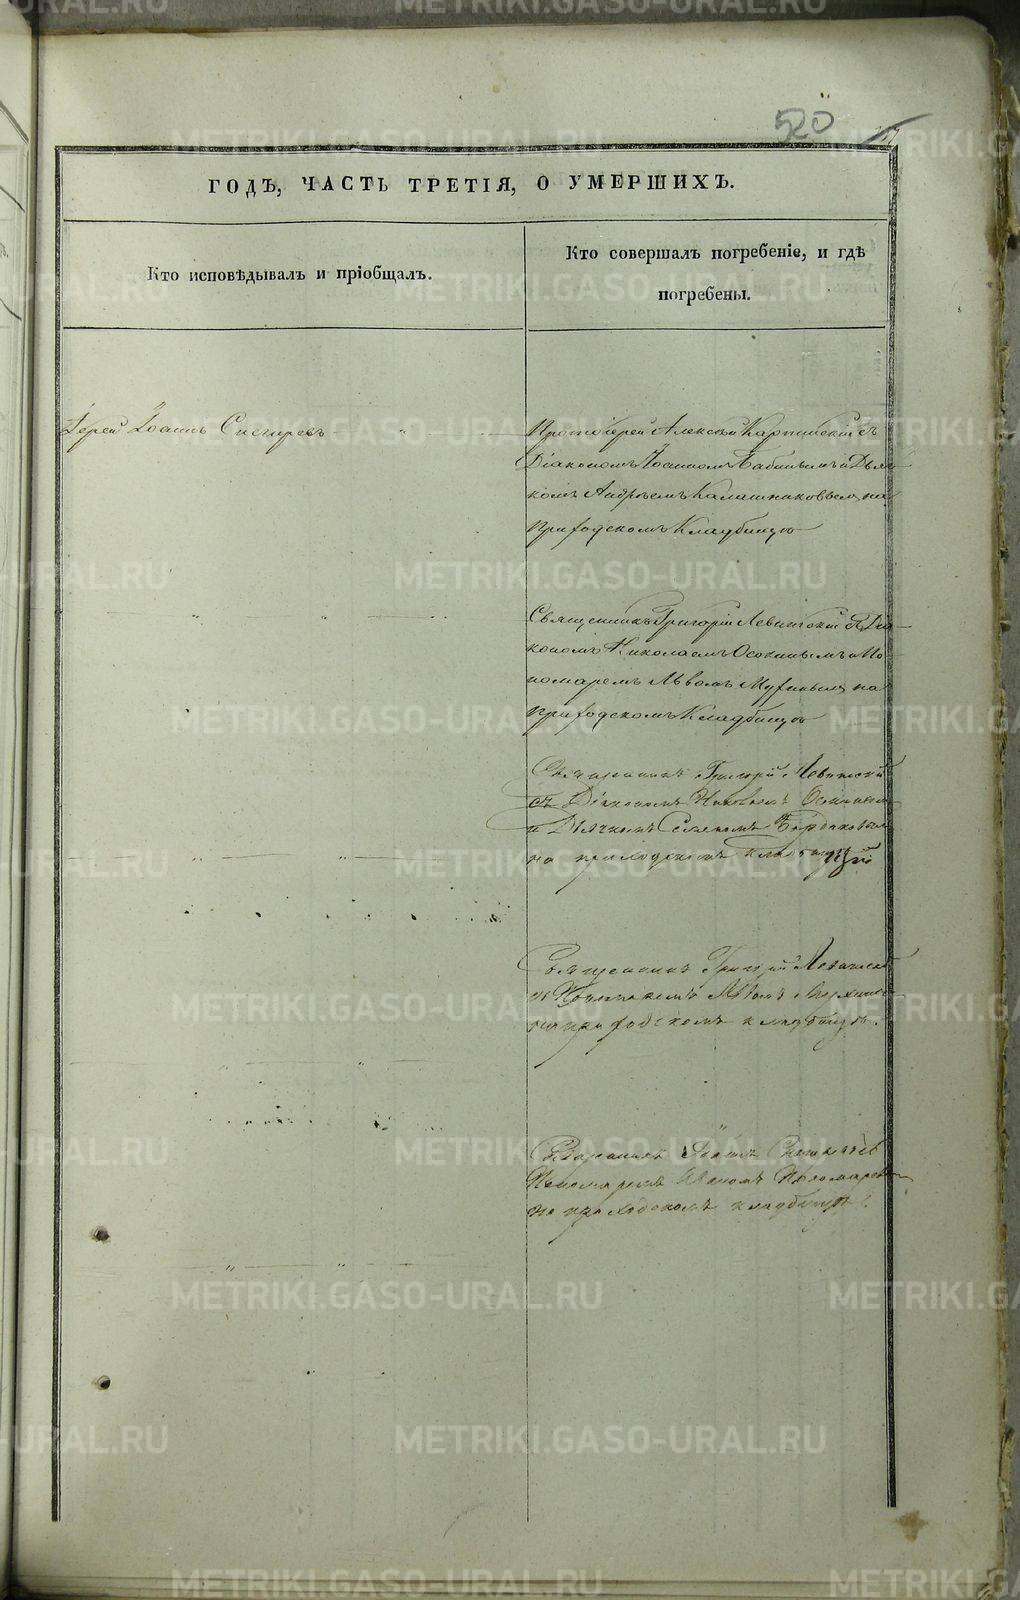 520
ГОДЪ, ЧАСТЬ ТРЕТІЯ, О УМЕРШИХЪ.
Кто исповѣдывалъ и пріобщалъ.
Кто совершалъ погребеніе, и гдѣ
погребены.
Іерей Іоаннъ Снигиревъ
Протоіерей Алексѣй Карпинскій съ
Діакономъ Іоанномъ Бабинымъ и Дьяч-
комъ Андреемъ Калашниковымъ, на
Приходскомъ Кладбищѣ
Священникъ Григорій Левитскій съ Діа-
кономъ Николаемъ Осокинымъ и По-
номаремъ Львомъ на
приходскомъ Кладбищѣ
Священникъ Григорій Левитскій
съ Діакономъ Николаемъ Осокинымъ
и Дьячкомъ
на приходскомъ кладбищѣ
Священникъ Григорій Левитскій
Пономаремъ Львомъ
на приходскомъ кладбищѣ.
Священникъ Іоаннъ
Пономаремъ Иваномъ Пономаревымъ
на приходскомъ кладбищѣ.
METRIKI.GASO-URAL.RU